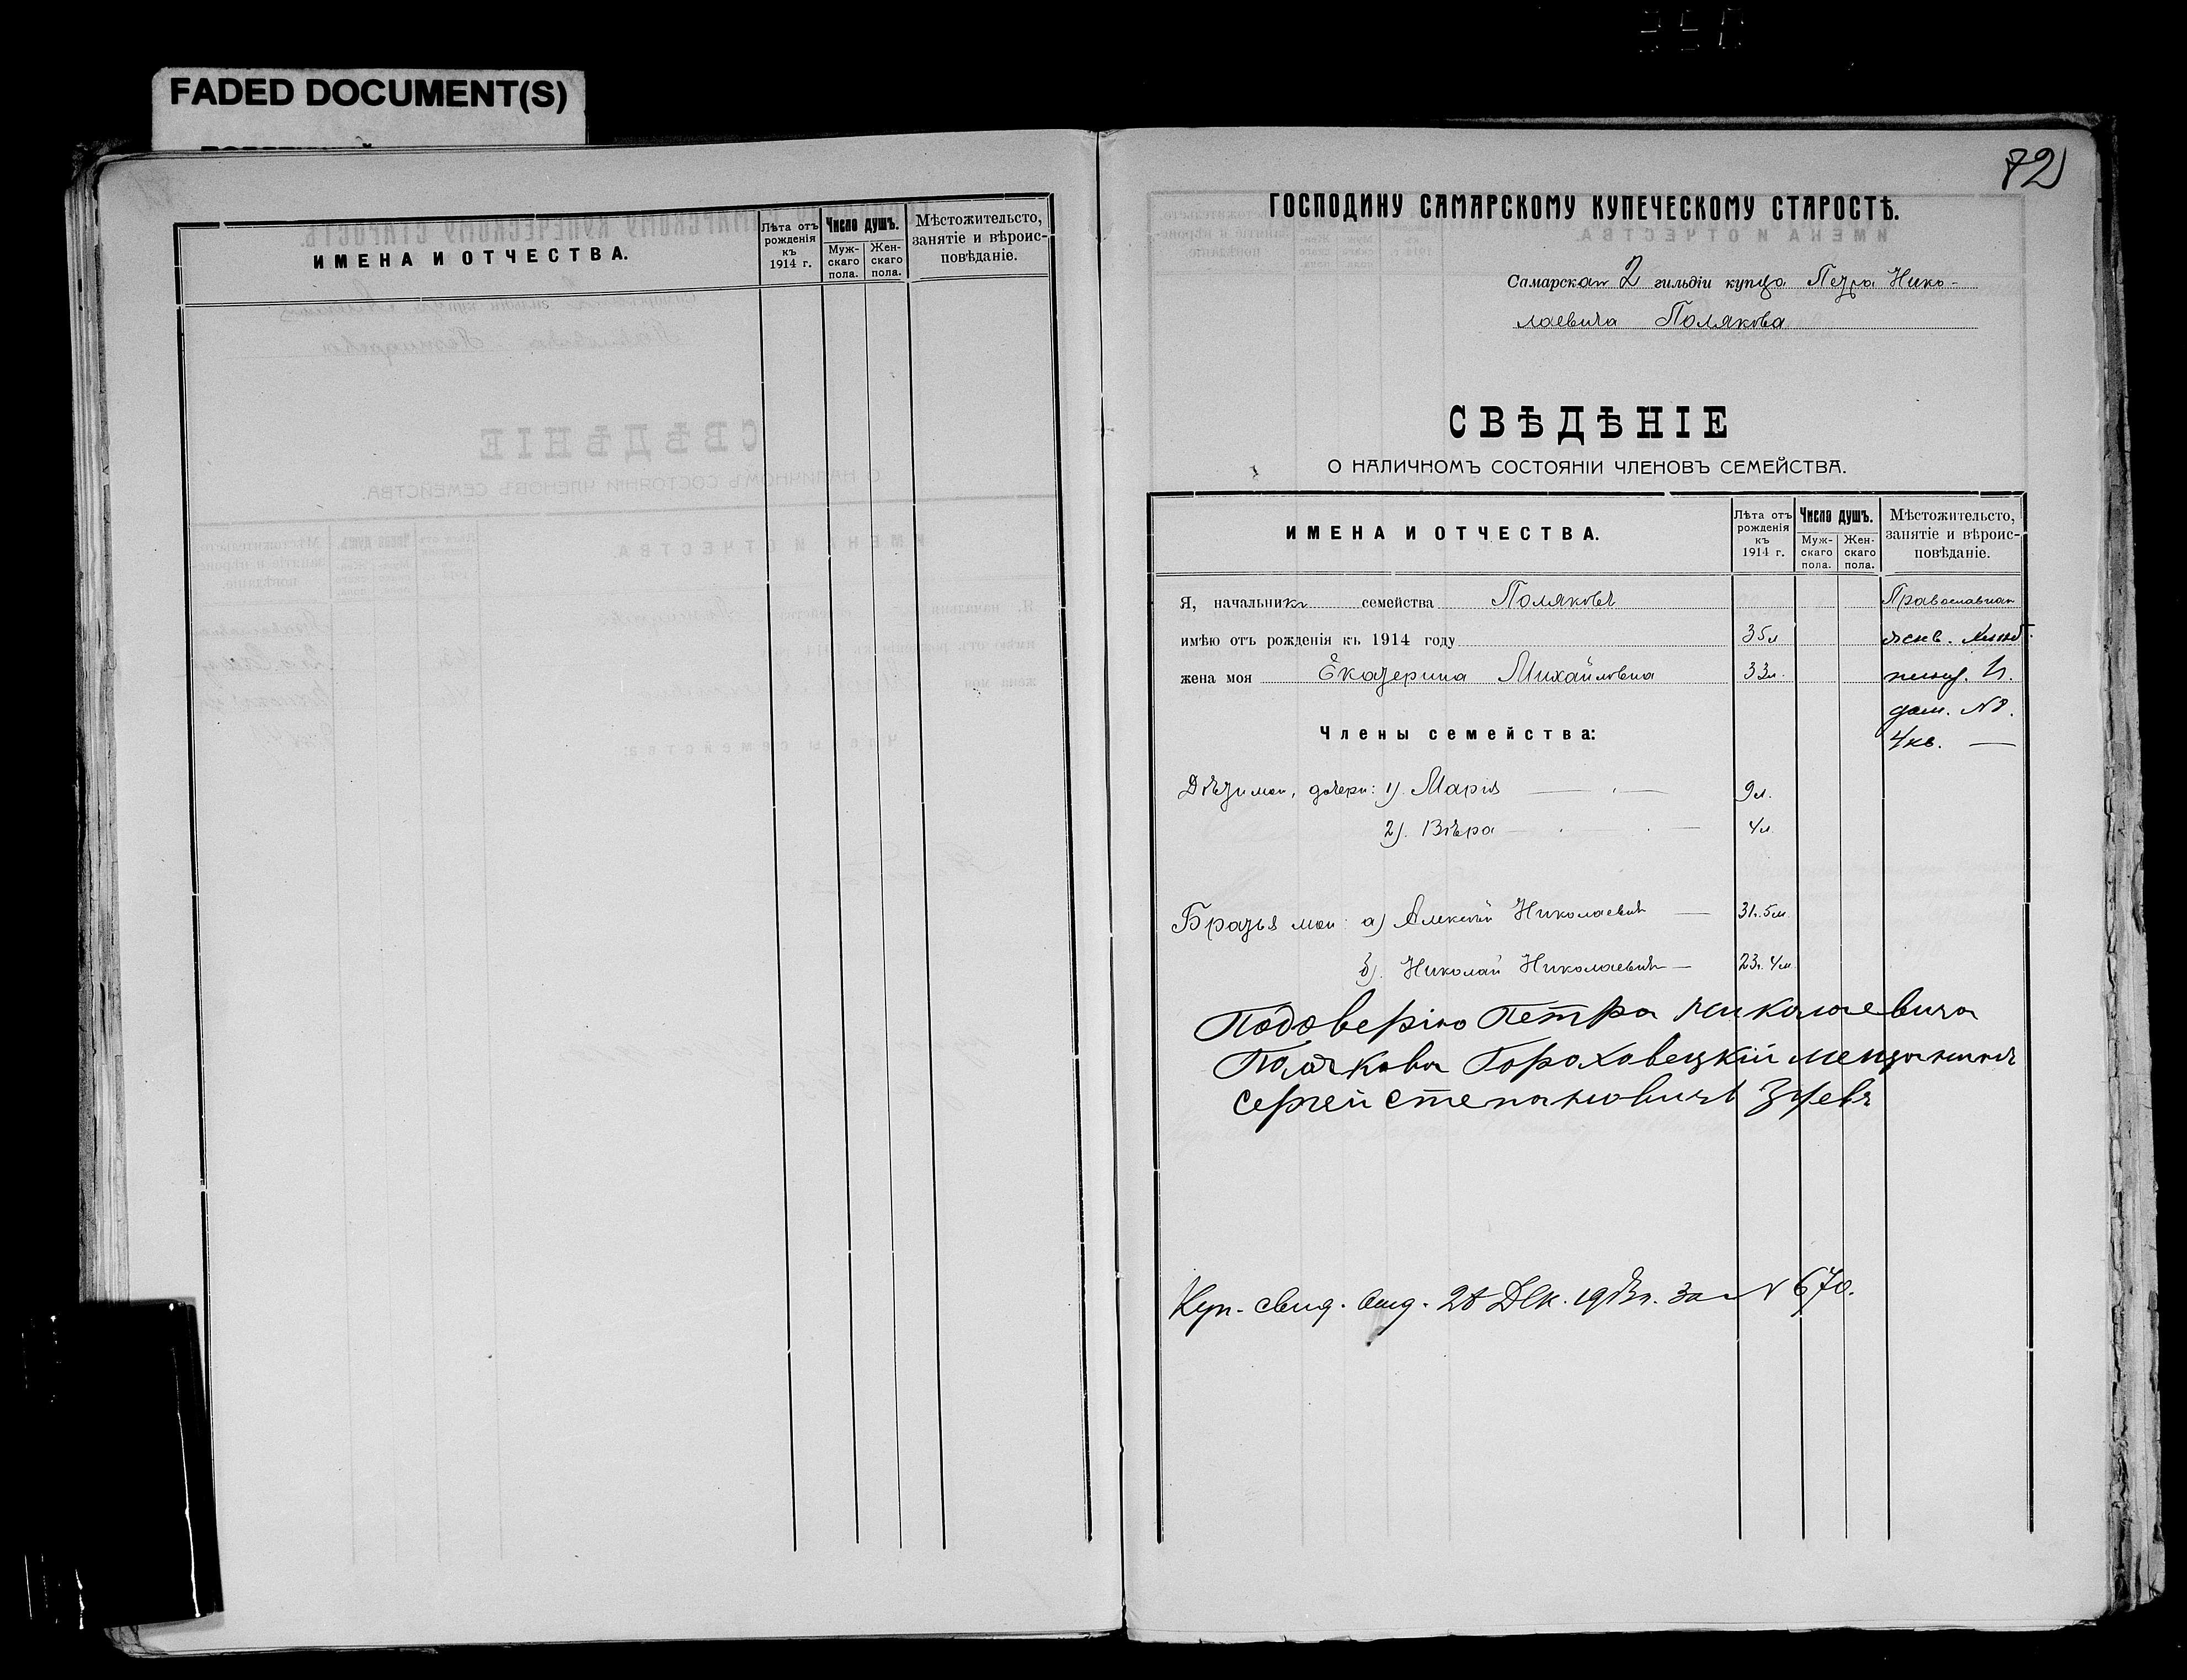 FADED DOCUMENT(S)
ИМЕНА И ОТЧЕСТВА.
Лѣта отъ рожденія къ 1914 г.
Число душъ.
Муж-скаго пола.
Жен-скаго пола.
Мѣстожительсто, занятіе и вѣроис-повѣданіе.
72
ГОСПОДИНУ САМАРСКОМУ КУПЕЧЕСКОМУ СТАРОСТѢ.
Самарскаго 2 гильдіи купца Петра Нико-
лаевича Полякова
СВѢДѢНІЕ
О НАЛИЧНОМЪ СОСТОЯНІИ ЧЛЕНОВЪ СЕМЕЙСТВА.
ИМЕНА И ОТЧЕСТВА.
Лѣта отъ рожденія къ 1914 г.
Число душъ.
Муж-скаго пола.
Жен-скаго пола.
Мѣстожительсто, занятіе и вѣроис-повѣданіе.
Я, начальникъ семейства Поляковъ
имѣю отъ рожденія къ 1914 году 35л
жена моя Екатерина Михайловна 33л.
дом. №
4 кв. —
Члены семейства:
Дѣти мои, дочери: 1). Марія — 9л.
2). Вѣра — 4л
Братья мои: а) Алексѣй Николаевичъ — 31г. 5м
б). Николай Николаевичъ — 23г. 4м
Подоверiю Петра Николаевича
Полякова Гороховецкiй мещанинъ
Сергей Степановичъ
Куп. свид. выд. 28 Дек. 1913г. за № 670.